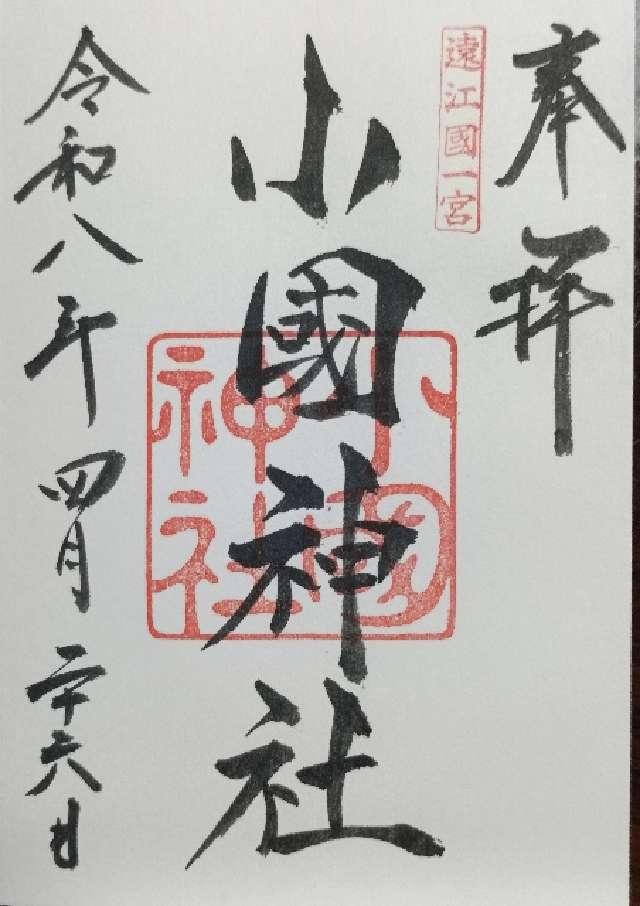 奉拝
遠江國一宮
小國神社
小國神社
令和八年四月二十六日